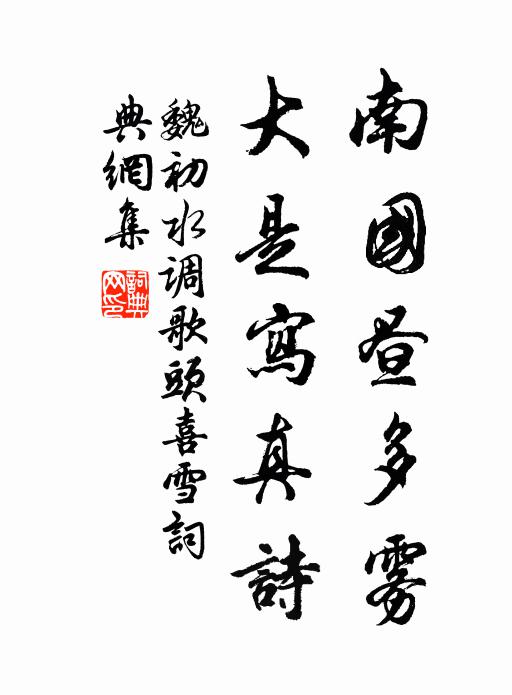 南國昼多雾
大是寫真詩
魏初水調歌頭喜雪詞
典網集
詞典網印